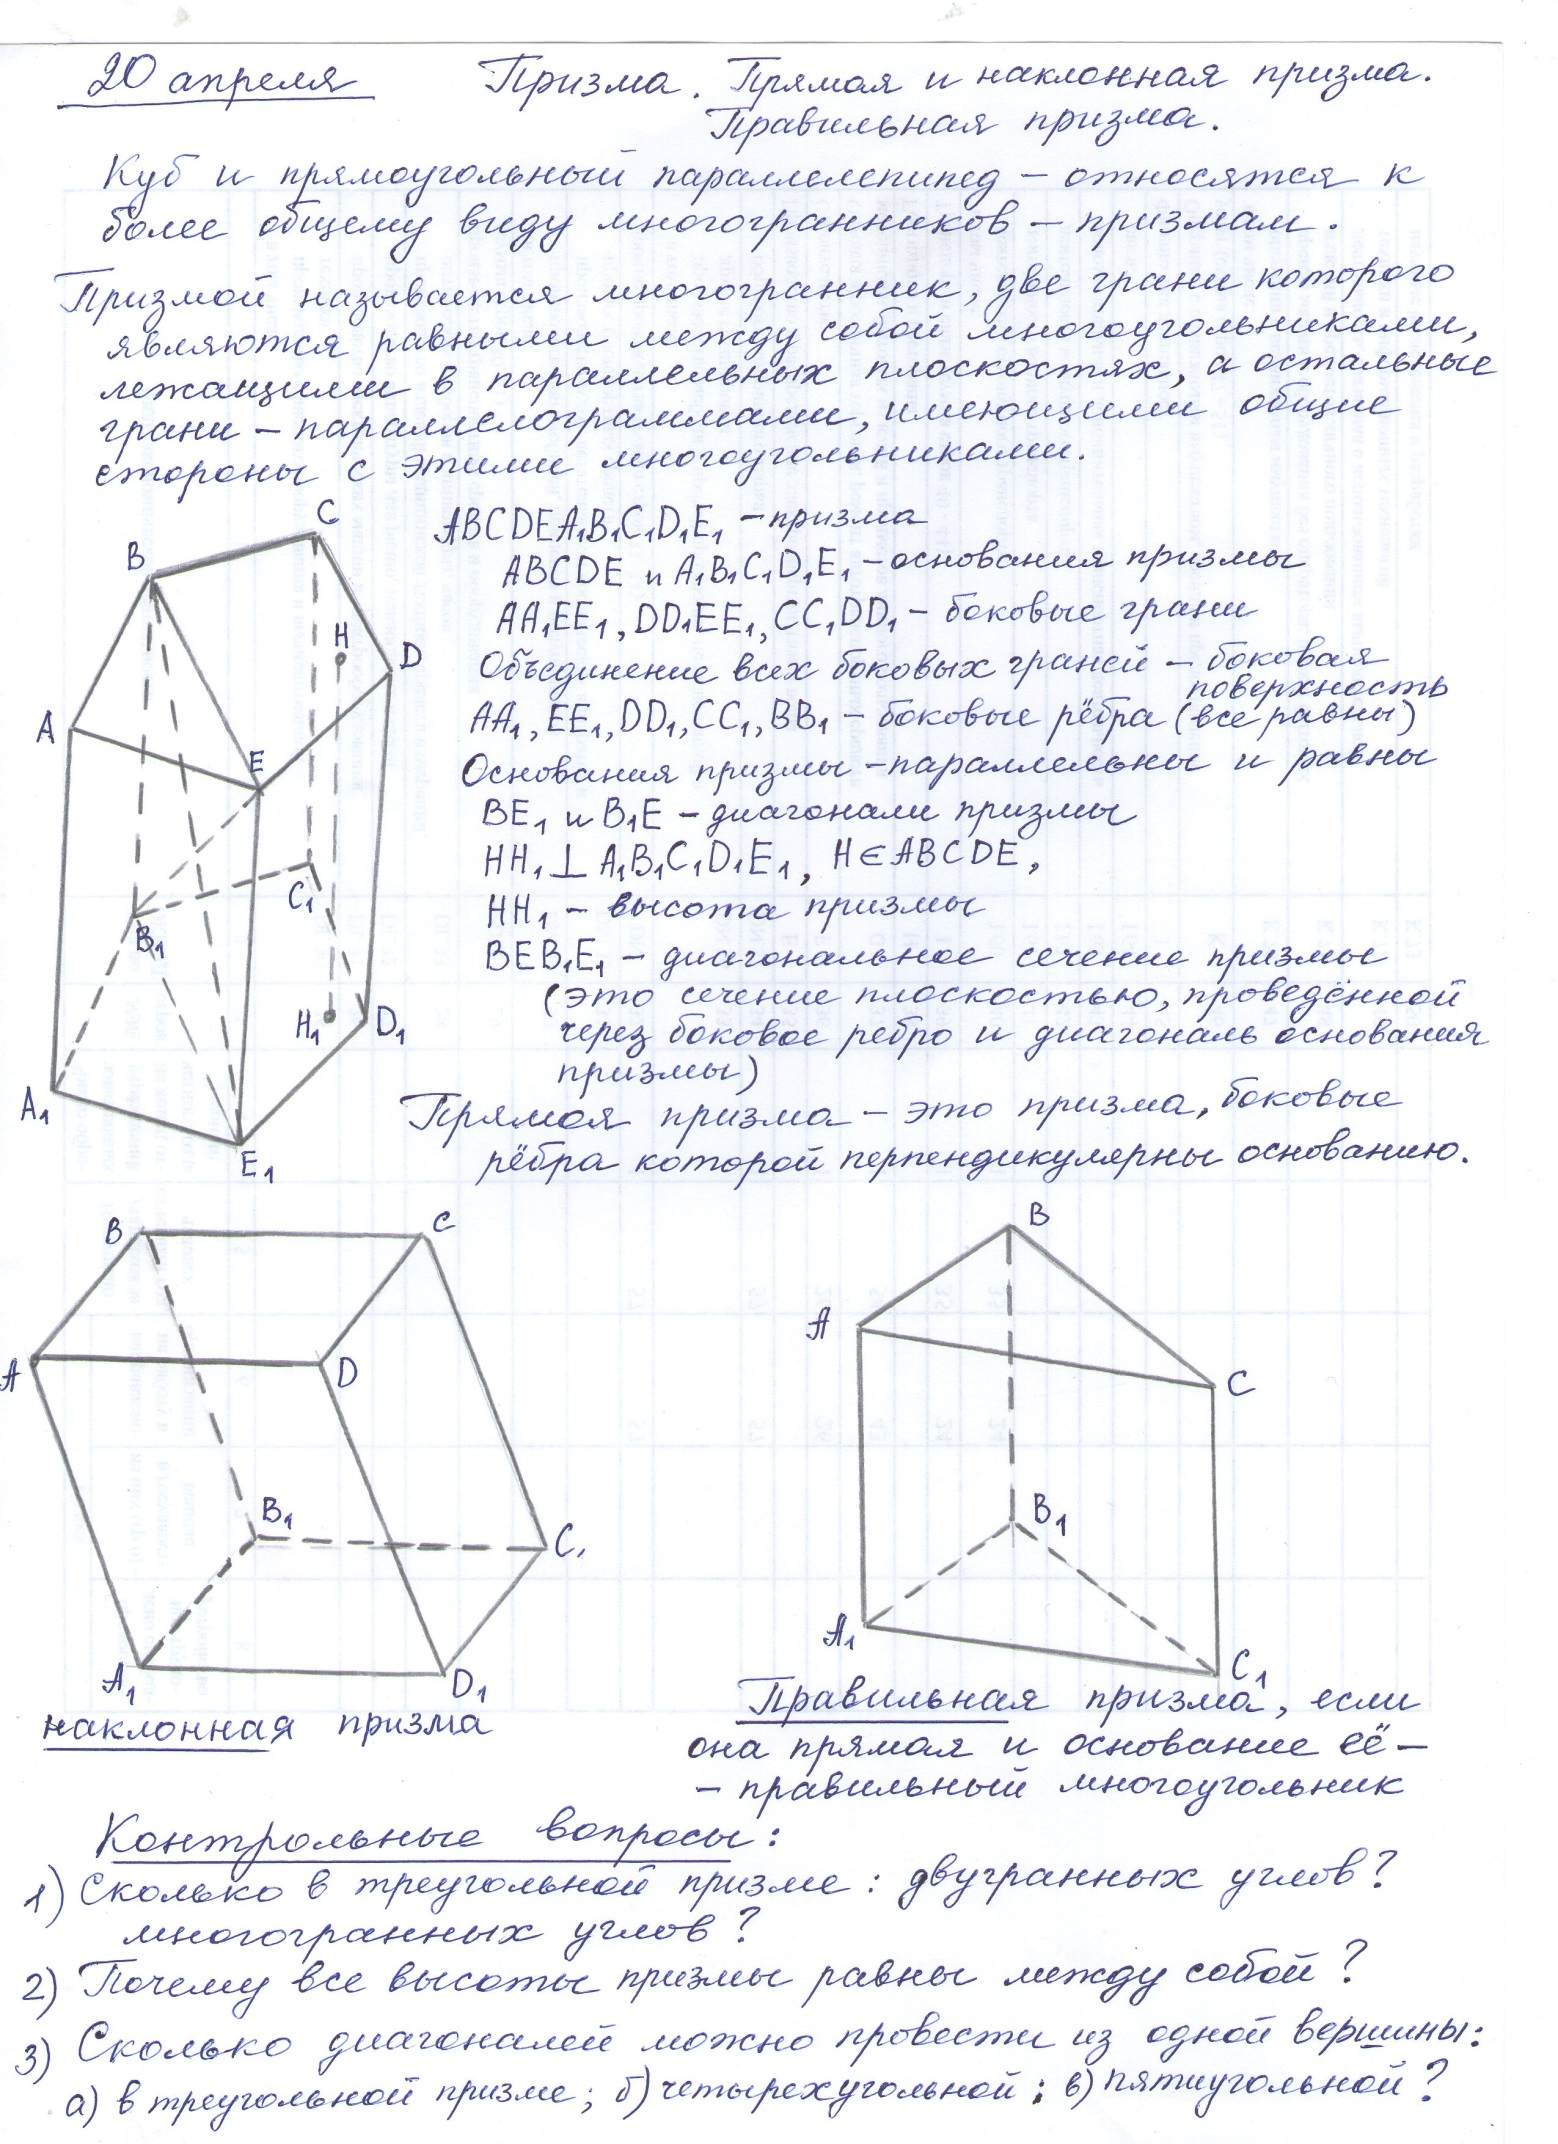 20 апреля Призма. Прямая и наклонная призма.
Правильная призма.
Куб и прямоугольный параллелепипед – относятся к
более общему виду многогранников – призмам.
Призмой называется многогранник, две грани которого
являются равными между собой многоугольниками,
лежащими в параллельных плоскостях, а остальные
грани – параллелограммами, имеющими общие
стороны с этими многоугольниками.
ABCDEA₁B₁C₁D₁E₁ – призма
ABCDE и A₁B₁C₁D₁E₁ – основания призмы
AA₁EE₁, DD₁EE₁, CC₁DD₁ – боковые грани
Объединение всех боковых граней – боковая
поверхность
AA₁, EE₁, DD₁, CC₁, BB₁ – боковые рёбра (все равны)
Основания призмы – параллельны и равны
BE₁ и B₁E – диагонали призмы
HH₁ ⊥ A₁B₁C₁D₁E₁, H∈ABCDE,
HH₁ – высота призмы
BEB₁E₁ – диагональное сечение призмы
(это сечение плоскостью, проведённой
через боковое ребро и диагональ основания
призмы)
C
B
H
D
A
E
C₁
B₁
H₁
D₁
A₁
E₁
Прямая призма – это призма, боковые
рёбра которой перпендикулярны основанию.
B
C
A
D
B₁
C₁
A₁
D₁
наклонная призма
B
A
C
B₁
A₁
C₁
Правильная призма, если
она прямая и основание её –
– правильный многоугольник
Контрольные вопросы:
1) Сколько в треугольной призме: двугранных углов?
многогранных углов?
2) Почему все высоты призмы равны между собой?
3) Сколько диагоналей можно провести из одной вершины:
а) в треугольной призме; б) четырехугольной; в) пятиугольной?